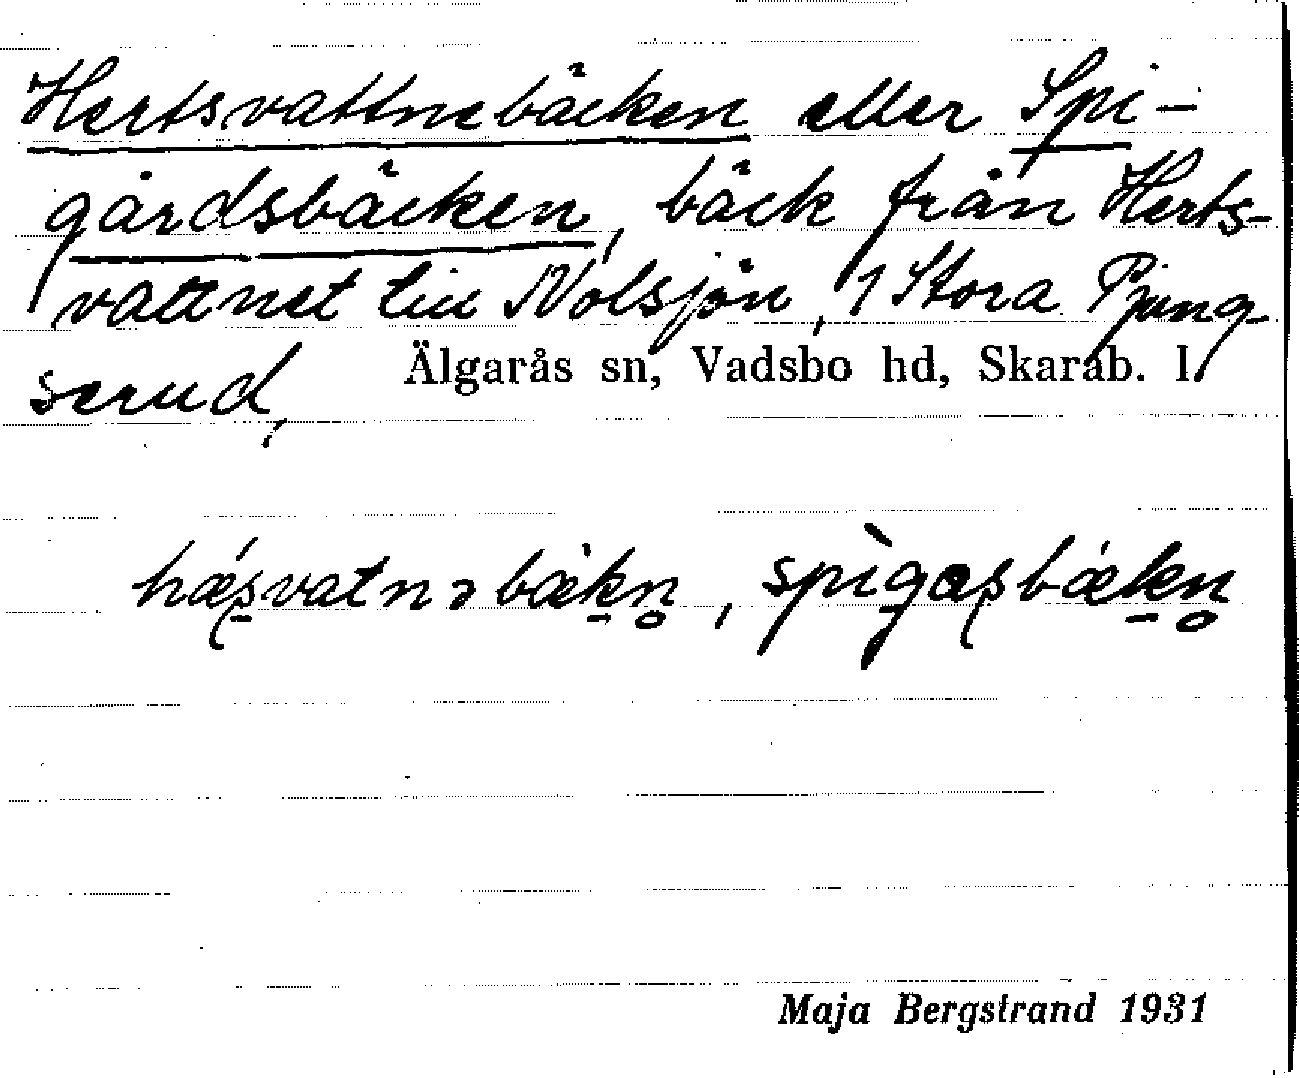 Hertsvattnebäcken eller Spi-
gårdsbäcken, bäck från Herts-
vattnet till Nolsjön, 1 Stora Pjung-
serud,
Älgarås sn, Vadsbo hd, Skarab. l.
spìgaʂbækn̥
Maja Bergstrand 1931